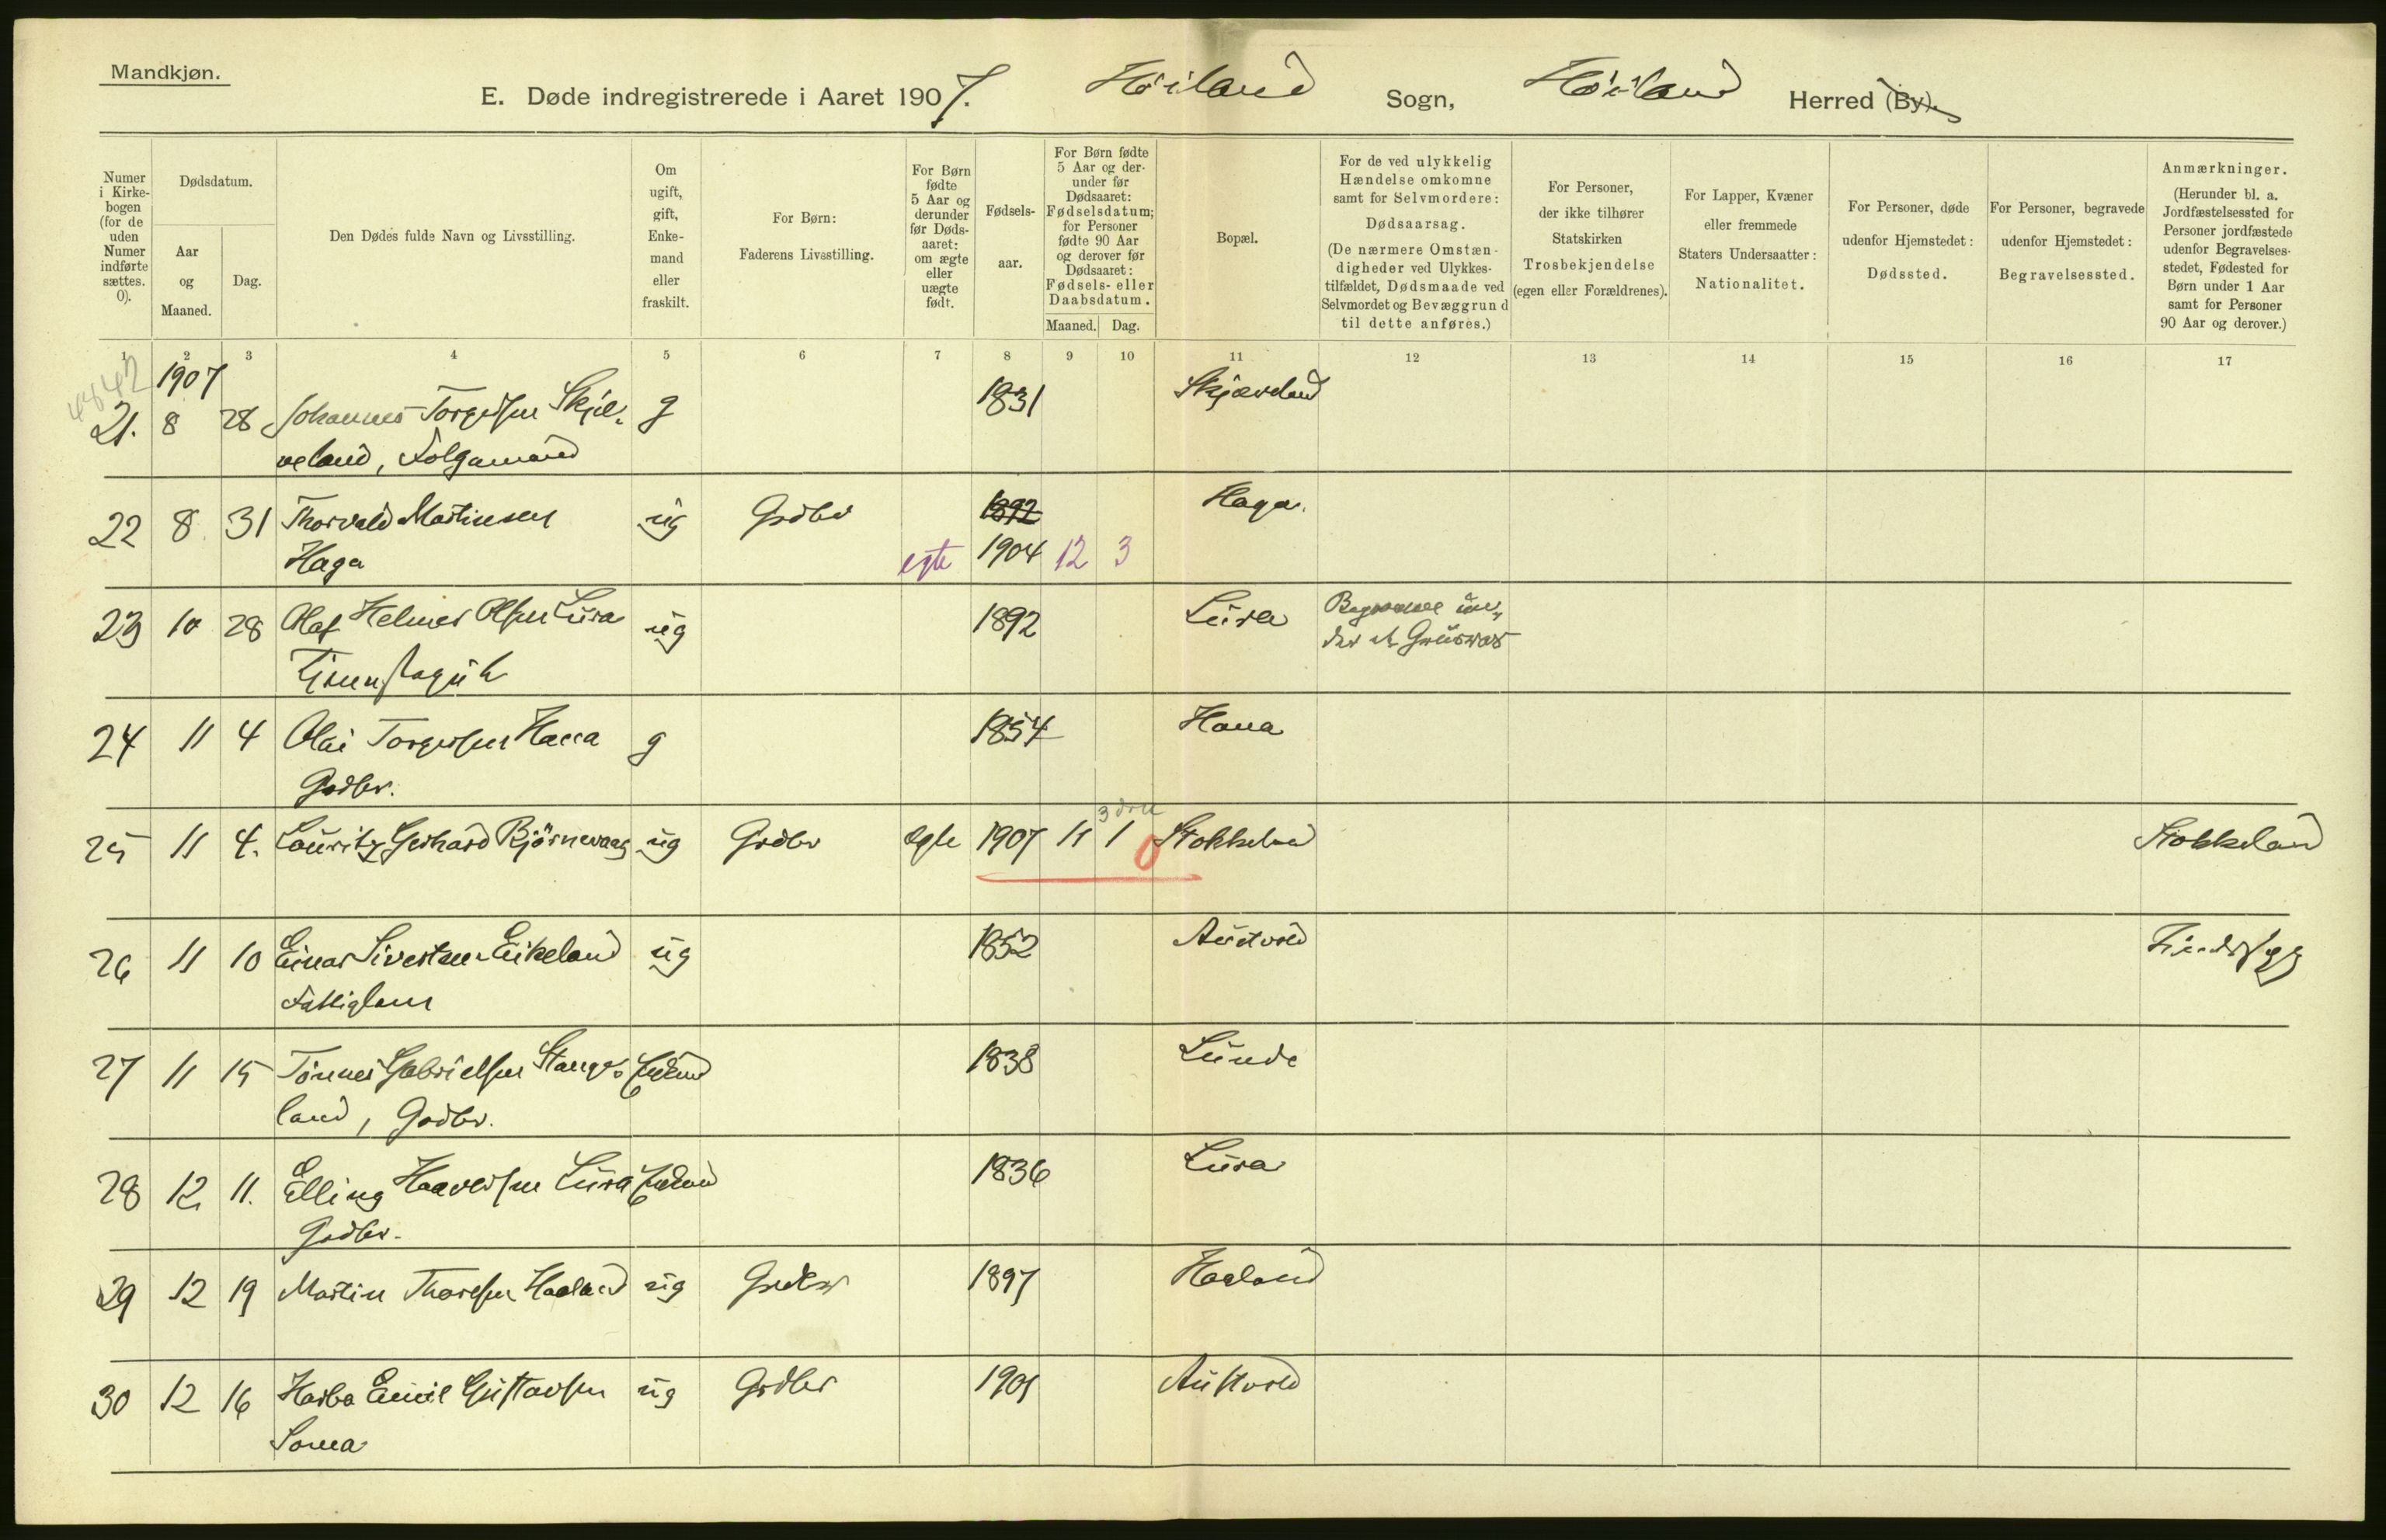 Mandkjøn.
E. Døde indregistrerede i Aaret 1907. Höiland Sogn, Höiland Herred (By).
Numer i Kirkebogen (for de uden Numer indførte sættes. 0).
Dødsdatum.
Aar og Maaned.
Dag.
Den Dødes fulde Navn og Livsstilling.
Om ugift, gift, Enkemand eller fraskilt.
For Børn: Faderens Livsstilling.
For Børn fødte 5 Aar og derunder før Dødsaaret: om ægte eller uægte født.
Fødselsaar.
For Børn fødte 5 Aar og derunder før Dødsaaret: Fødselsdatum; for Personer fødte 90 Aar og derover før Dødsaaret: Fødsels- eller Daabsdatum.
Maaned. Dag.
Bopæl.
For de ved ulykkelig Hændelse omkomne samt for Selvmordere: Dødsaarsag. (De nærmere Omstændigheder ved Ulykkestilfældet, Dødsmaade ved Selvmordet og Bevæggrund til dette anføres.)
For Personer, der ikke tilhører Statskirken Trosbekjendelse (egen eller Forældrenes).
For Lapper, Kvæner eller fremmede Staters Undersaatter: Nationalitet.
For Personer, døde udenfor Hjemstedet: Dødssted.
For Personer, begravede udenfor Hjemstedet: Begravelsessted.
Anmærkninger. (Herunder bl. a. Jordfæstelsessted for Personer jordfæstede udenfor Begravelsesstedet, Fødested for Børn under 1 Aar samt for Personer 90 Aar og derover.)
1 2 3 4 5 6 7 8 9 10 11 12 13 14 15 16 17
4842
1907
21. 8 28 Johannes Torgersen Skjæ- g 1831 Skjæveland
veland, Folgamand
22 8 31 Thorvald Martinsen ug Grdbr 1892 Haga.
Haga egte 1904 12 3
23 10 28 Olaf Helmer Olsen Lura ug 1892 Lura Begravet un-
der et Grusras
24 11 4 Olai Torgersen Hana g 1854 Hana
Grdbr.
3 dm
25 11 4. Lauritz Gerhard Björnevaag ug Grdbr egte 1907 11 1 0 Stokkeland Stokkeland
26 11 10 Einar Sivertsen Eikeland ug 1852 Austvold
Fattiglem
27 11 15 Tönnes Gabrielsen Stange- Enkemd 1838 Lunde
land, Grdbr.
28 12 11. Elling Haaversen Lura Enkemd 1836 Lura
Grdbr.
29 12 19 Martin Thorsen Haaland ug Grdbr 1897 Haaland
30 12 16 Emil Gustavsen ug Grdbr 1901 Austvold
Soma